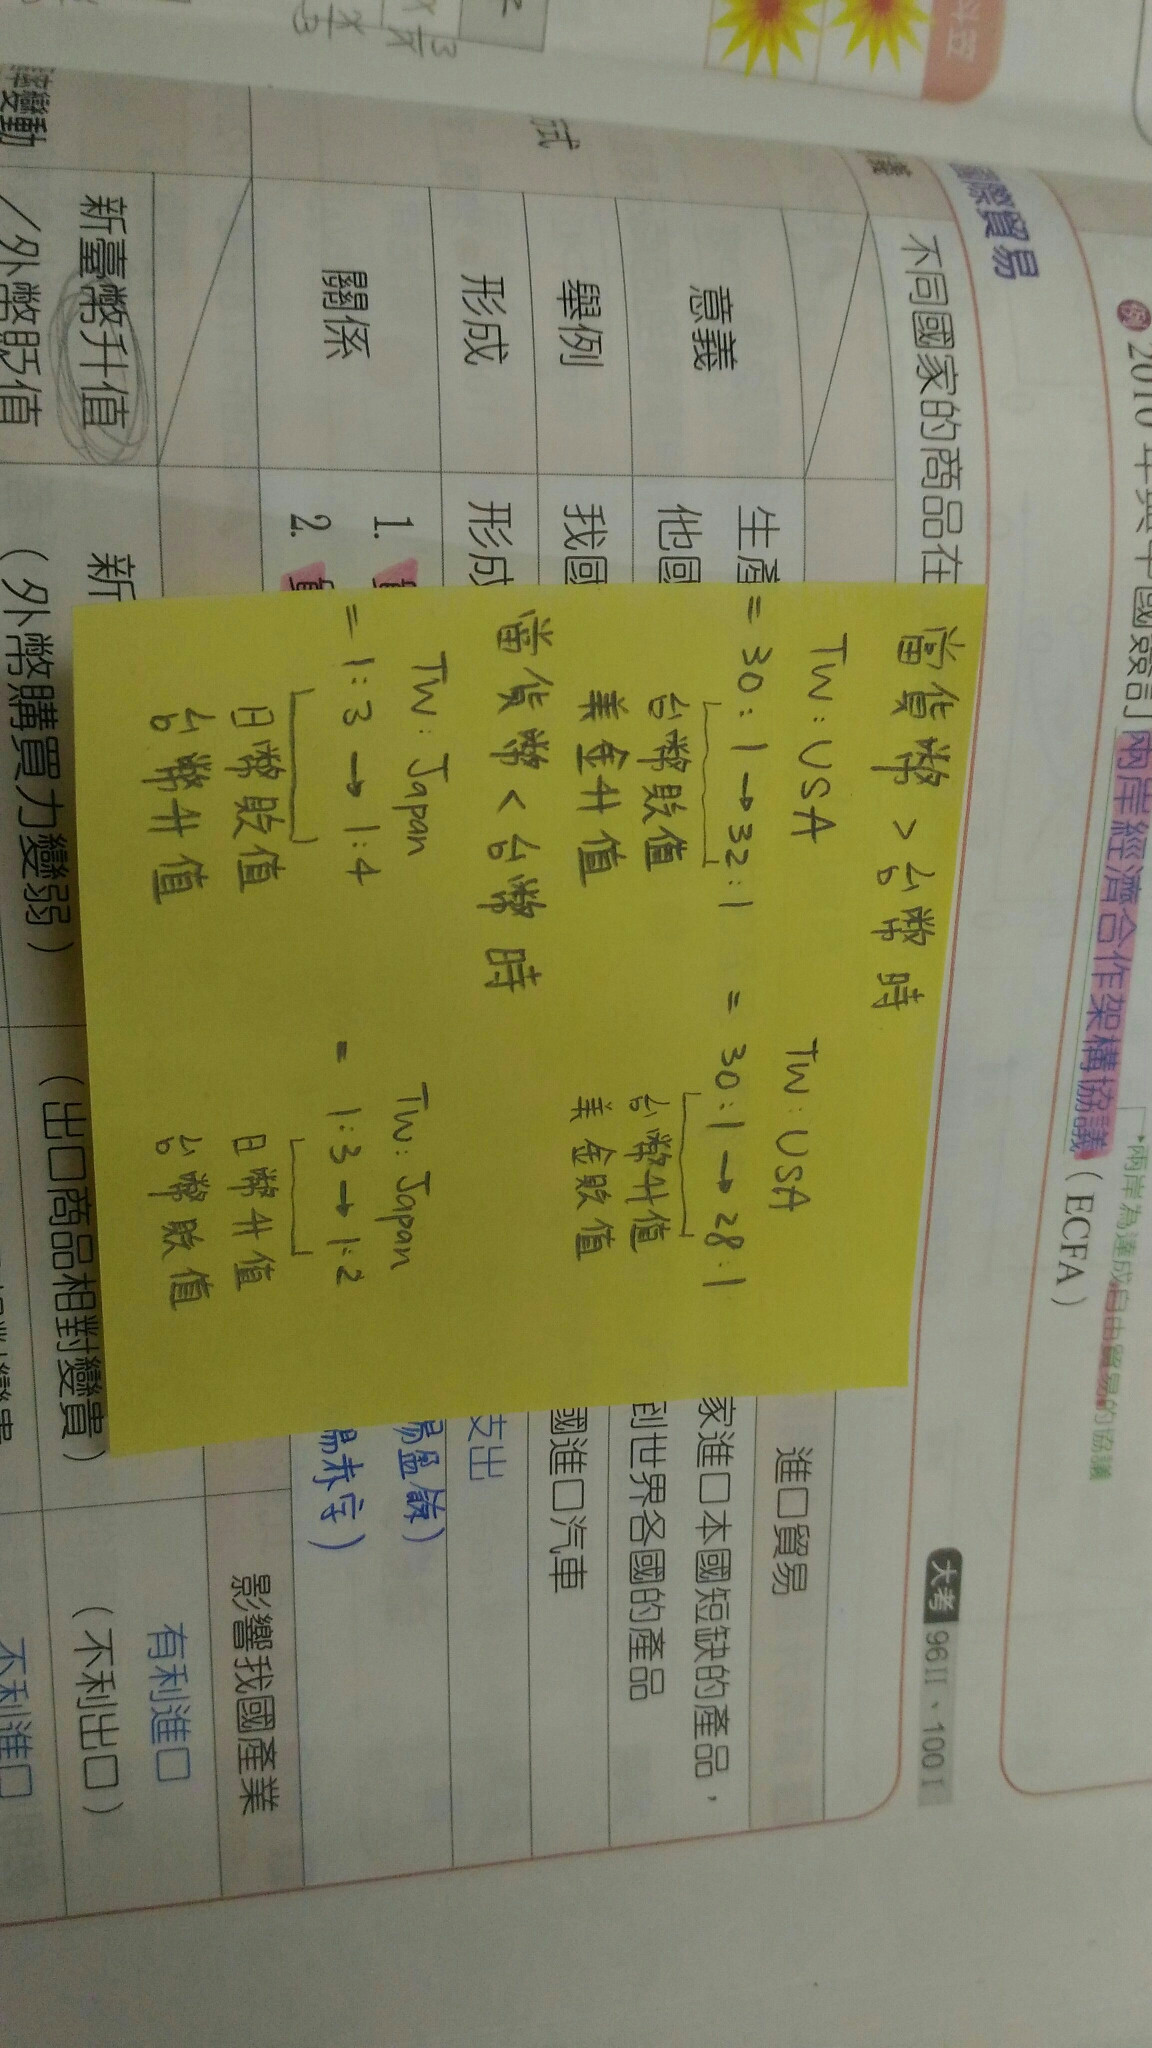 例 2010 年與中國簽訂兩岸經濟合作架構協議（ECFA）
兩岸為達成自由貿易的協議
國際貿易
大考 96II、100I
不同國家的商品在
進口貿易
意義
生產
他國
家進口本國短缺的產品，
到世界各國的產品
舉例
我國
國進口汽車
形成
形成
支出
關係
1.
2.
易盈餘）
易赤字）
影響我國產業
變動
新臺幣升值
／外幣貶值
新
（外幣購買力變弱）
（出口商品相對變貴）
有利進口
（不利出口）
不利進口
當貨幣 > 台幣時
TW : USA
= 30 : 1 → 32 : 1
台幣敗值
美金升值
TW : USA
= 30 : 1 → 28 : 1
台幣升值
美金敗值
當貨幣 < 台幣時
TW : Japan
= 1 : 3 → 1 : 4
日幣敗值
台幣升值
TW : Japan
= 1 : 3 → 1 : 2
日幣升值
台幣敗值